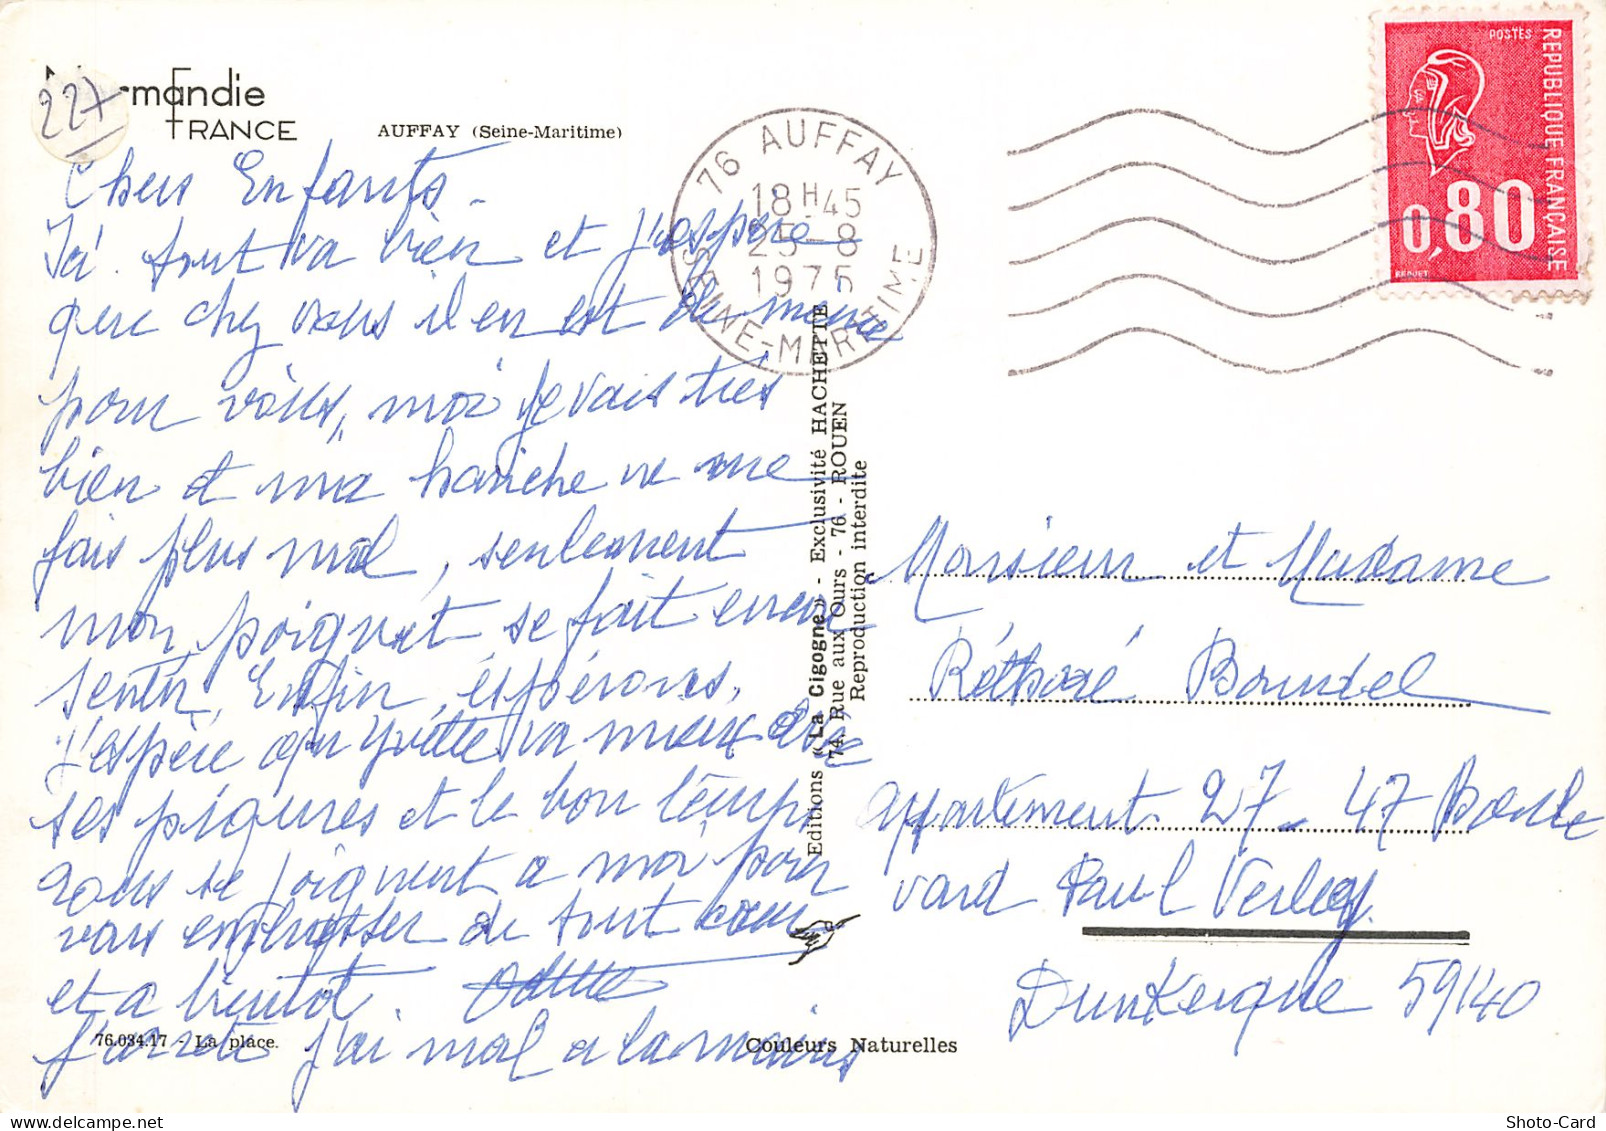 227
Normandie
FRANCE
AUFFAY (Seine-Maritime)
Chers Enfants -
Ici tout va bien et j'espère
que chez vous il en est de meme
pour vous, moi je vais tres
bien et ma hanche ne me
fais plus mal, seulement
mon poignet se fait encore
sentir. Enfin, éspérons,
j'espère qu'Yvette va mieux avec
ses piqures et le bon temps
se joignent a moi pour
vous embrasser de tout coeur
et a bientot.
j'arrete j'ai mal a la main
76.034.17 - La place.
Couleurs Naturelles
Editions « La Cigogne » - Exclusivité HACHETTE
74, Rue aux Ours - 76 - ROUEN
Reproduction interdite
76 AUFFAY
18H45
25-8
1975
SEINE-MARITIME
POSTES
REPUBLIQUE FRANÇAISE
0,80
BEQUET
Monsieur et Madame
Réthoré
appartement 27 - 47 Boule
vard Paul Verley
Dunkerque 59140
Shoto-Card